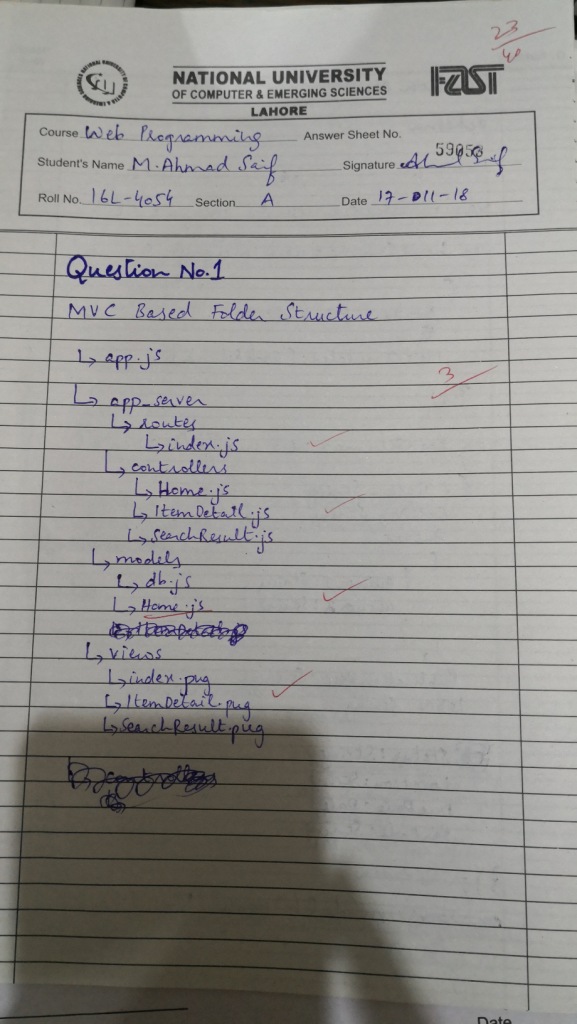 23/40
NATIONAL UNIVERSITY
OF COMPUTER & EMERGING SCIENCES
FAST
LAHORE
Course Web Programming Answer Sheet No. 59058
Student's Name M. Ahmad Saif Signature
Roll No. 16L-4054 Section A Date 17-011-18
Question No.1
MVC Based Folder Structure
↳ app.js
3
↳ app_server
↳ routes
↳ index.js
↳ controllers
↳ Home.js
↳ ItemDetail.js
↳ SearchResult.js
↳ models
↳ db.js
↳ Home.js
↳ views
↳ index.pug
↳ ItemDetail.pug
↳ SearchResult.pug
Date